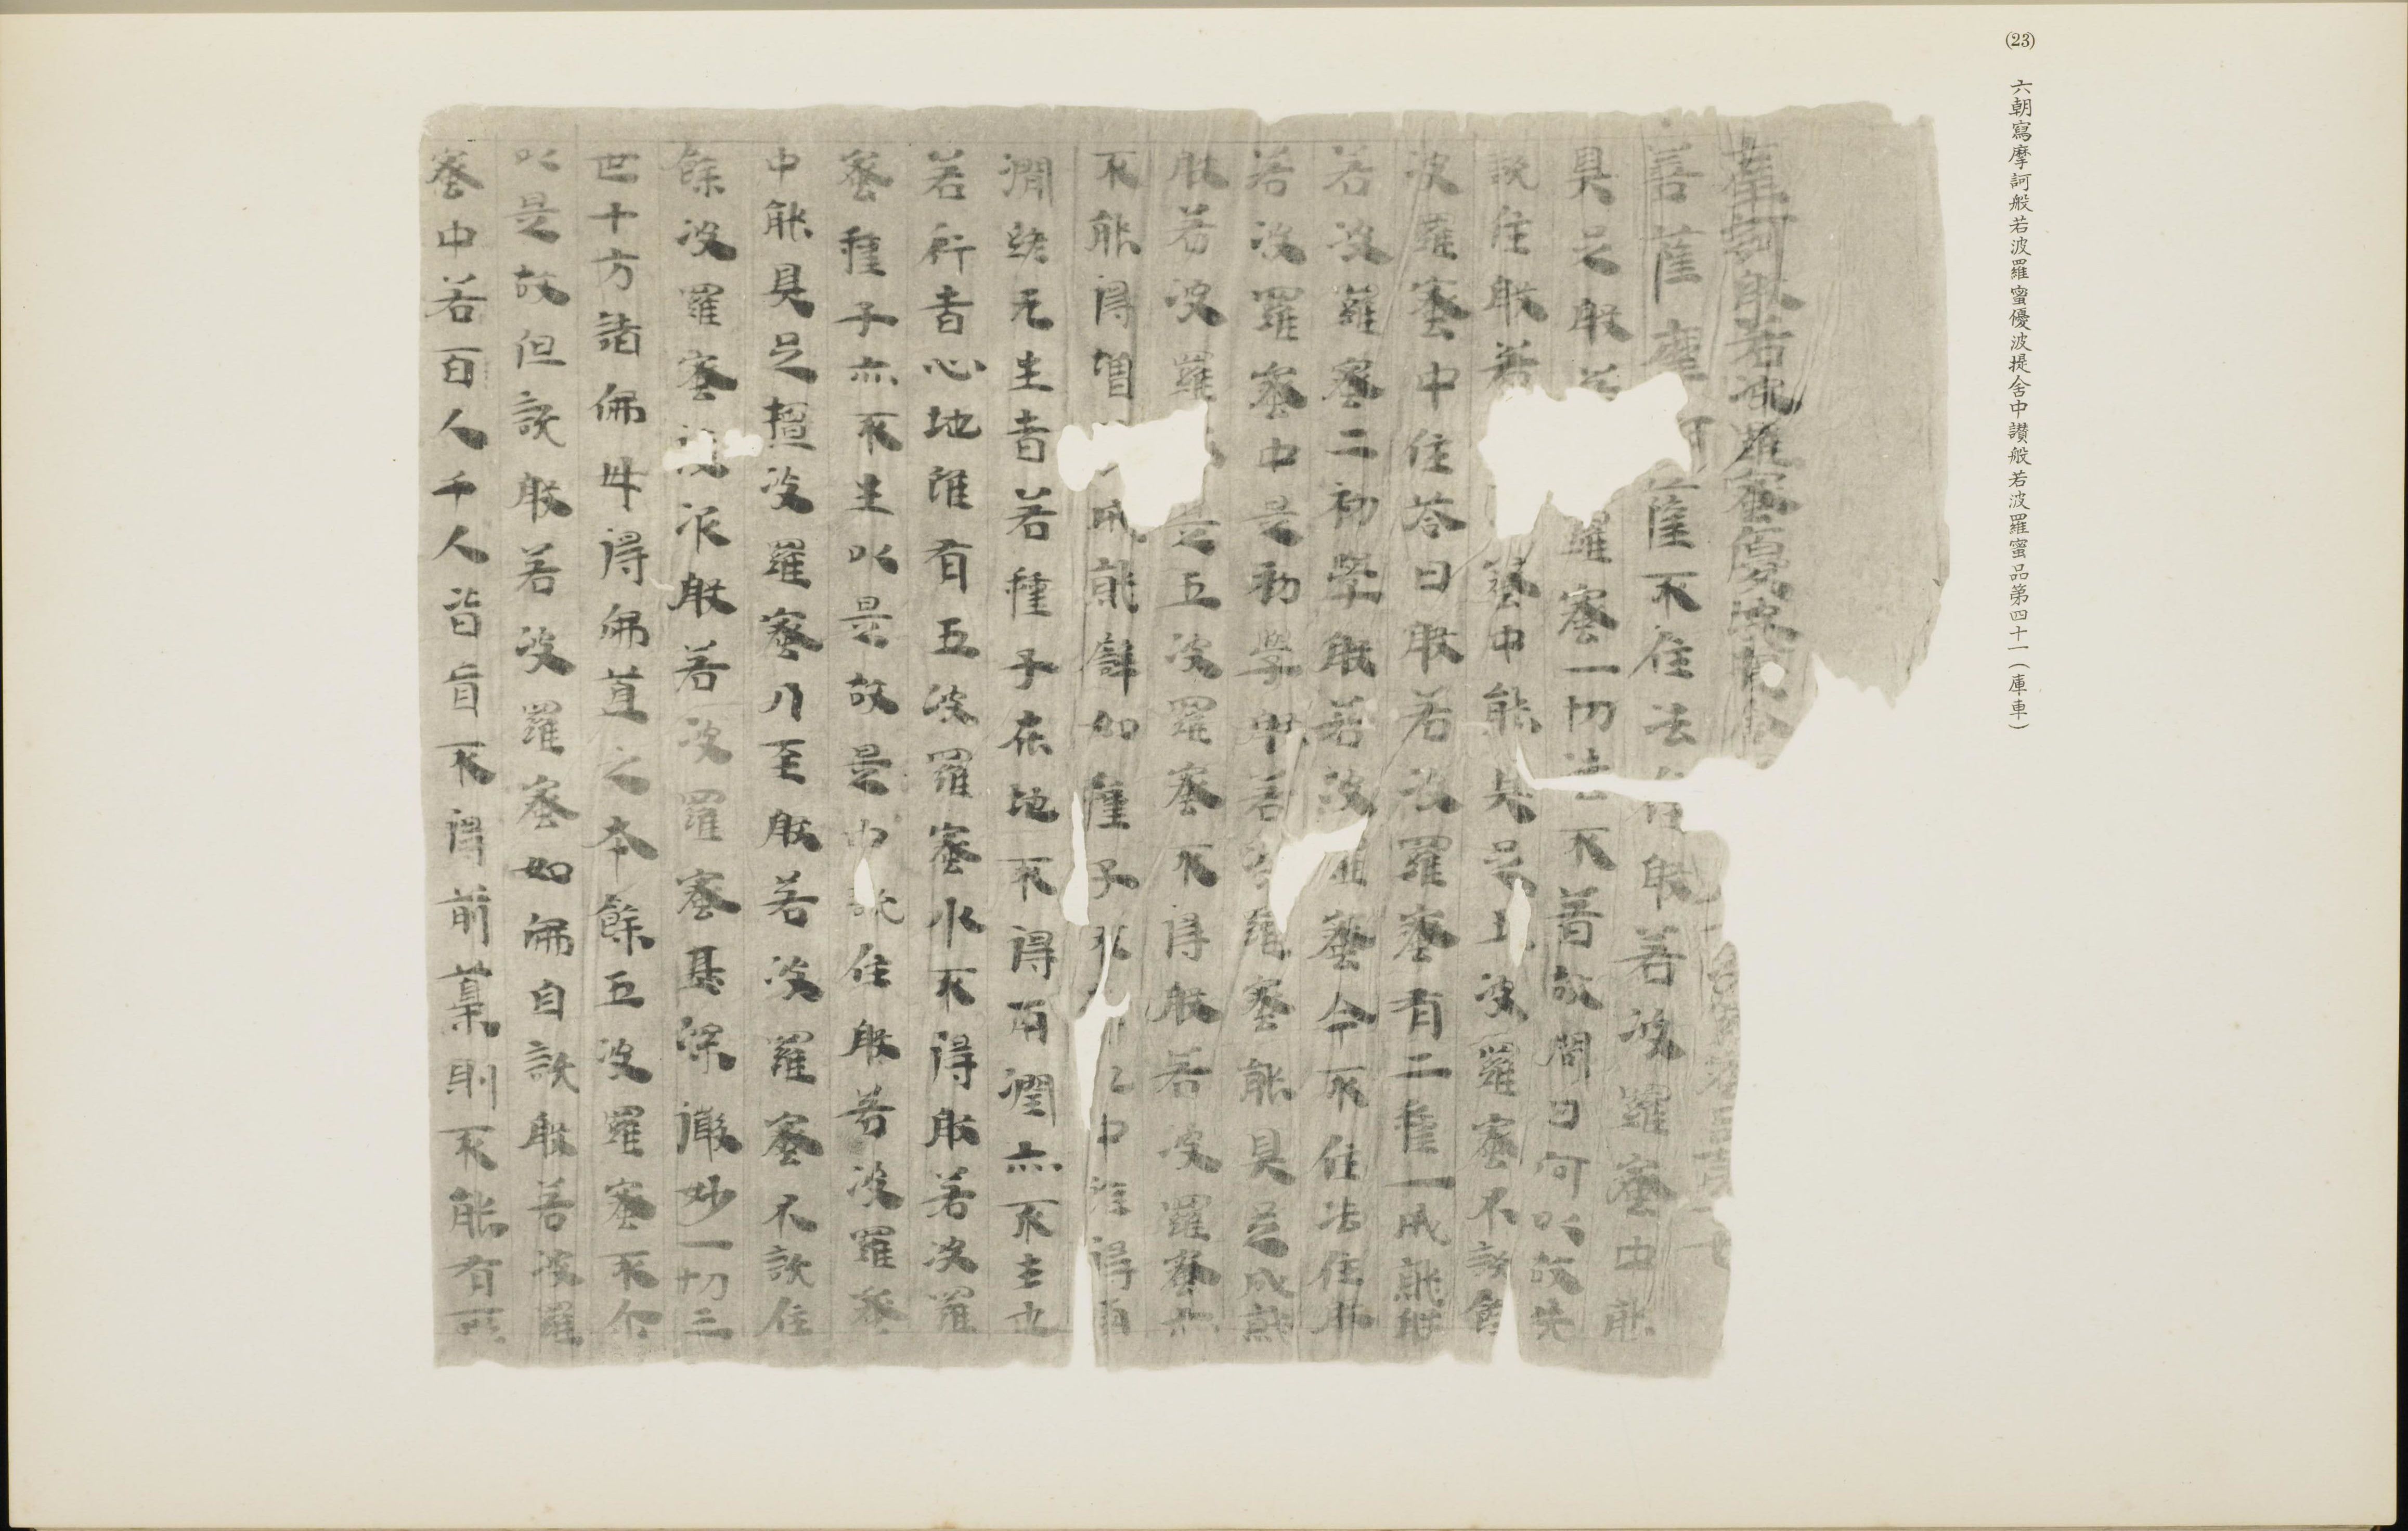 (23)
六朝寫摩訶般若波羅蜜優波提舍中讃般若波羅蜜品第四十一(庫車)
摩訶般若波羅蜜優波提舍
菩薩摩訶薩不住法住般若波羅蜜中能
具足般若羅蜜一切法不著故問曰何以故先
說住般若蜜中能具足五波羅蜜不說餘
波羅蜜中住荅曰般若波羅蜜有二種一成就
若波羅蜜二初學般若波羅蜜今不住法住般
若波羅蜜中是初學般若波羅蜜能具足成就
般若波羅是五波羅蜜不得般若波羅蜜亦
不能得曽成就譬如種子不中雖得雨
潤終无生者若種子在地不得雨潤亦不生也
若行者心地雖有五波羅蜜水不得般若波羅
蜜種子亦不生以是故是中說住般若波羅蜜
中能具足檀波羅蜜乃至般若波羅蜜不說住
餘波羅蜜復次般若波羅蜜甚深微妙一切三
世十方諸佛井得佛道之本餘五波羅蜜不尒
以是故但說般若波羅蜜如佛自說般若波羅
蜜中若百人千人皆盲不得前導則不能有所